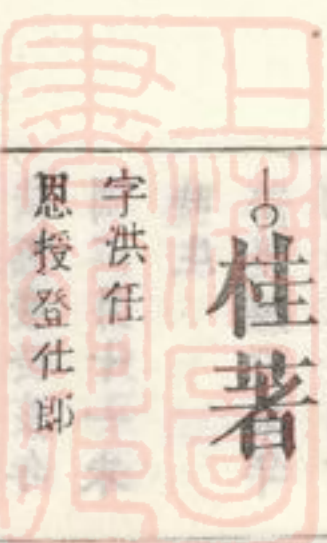 桂著
字洪任
恩授登仕郎